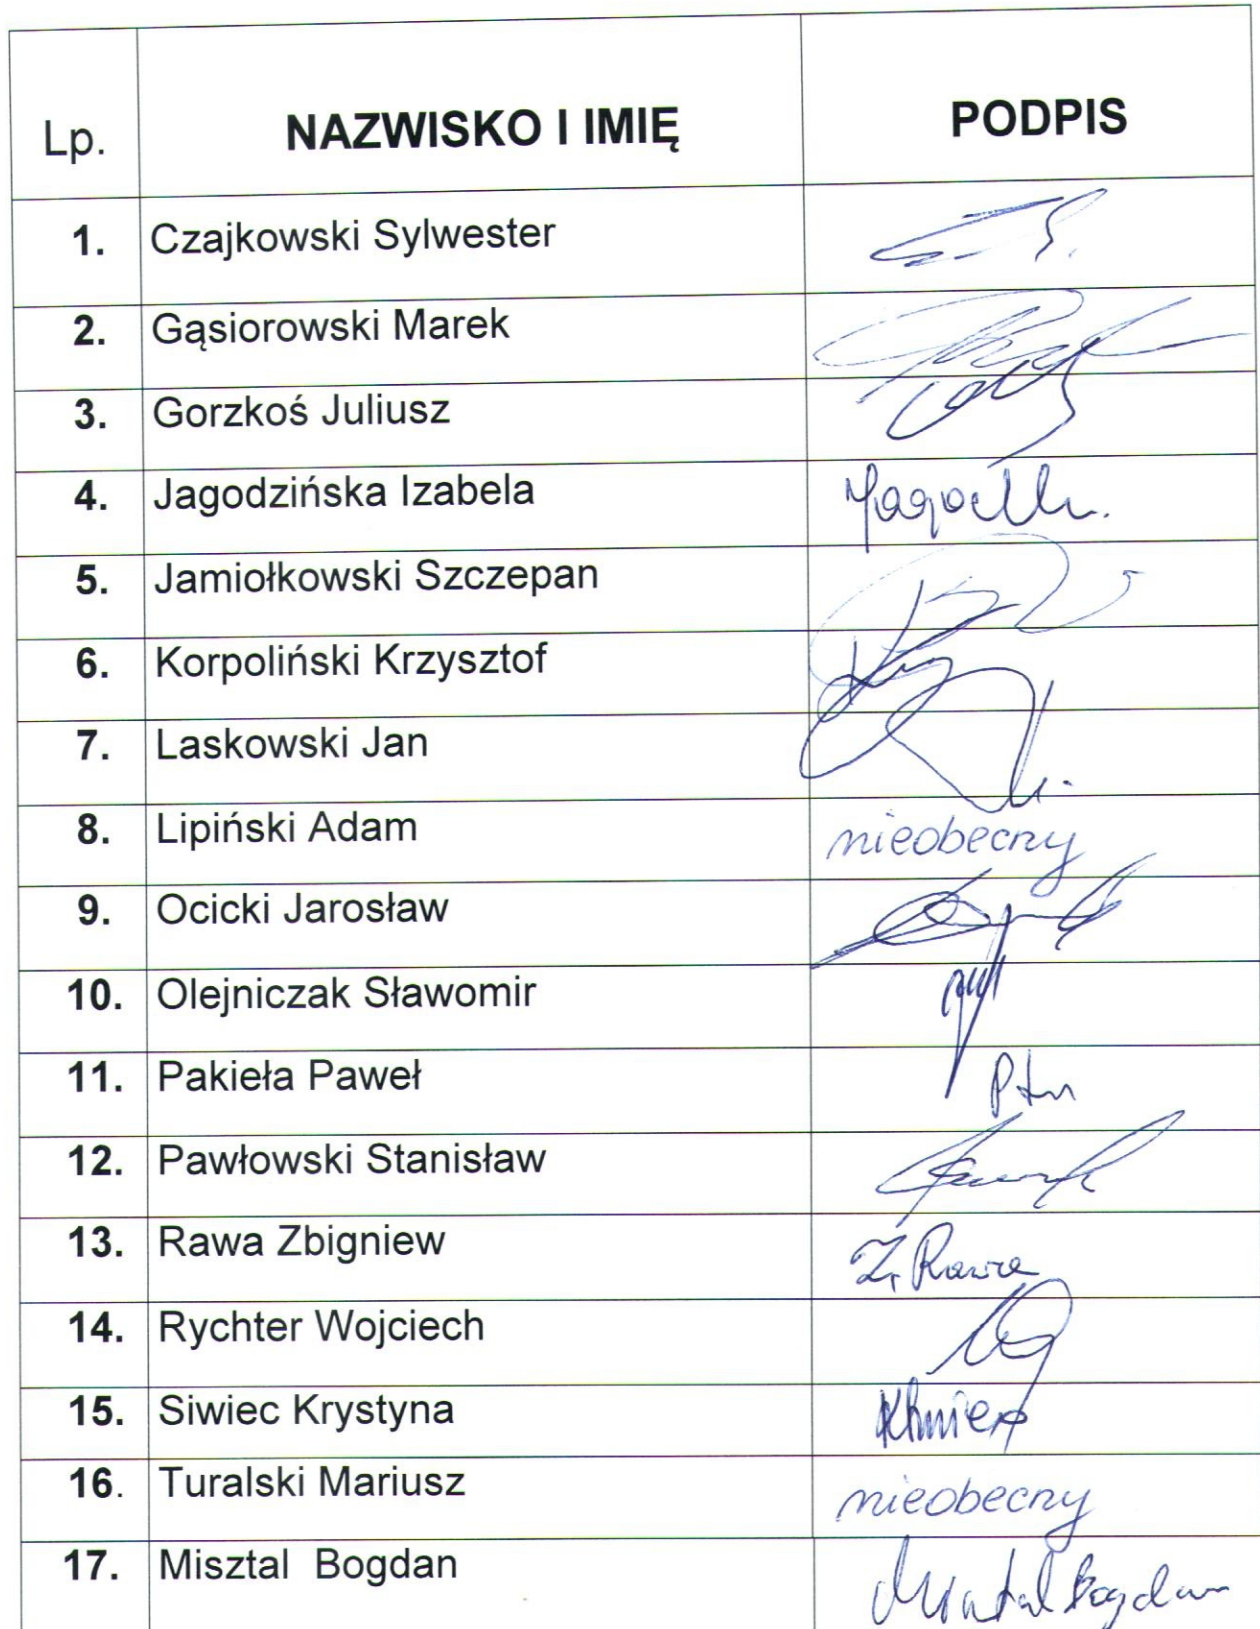 Lp. NAZWISKO I IMIĘ PODPIS
1. Czajkowski Sylwester
2. Gąsiorowski Marek
3. Gorzkoś Juliusz
4. Jagodzińska Izabela
5. Jamiołkowski Szczepan
6. Korpoliński Krzysztof
7. Laskowski Jan
8. Lipiński Adam nieobecny
9. Ocicki Jarosław
10. Olejniczak Sławomir
11. Pakieła Paweł
12. Pawłowski Stanisław
13. Rawa Zbigniew Z. Rawa
14. Rychter Wojciech
15. Siwiec Krystyna
16. Turalski Mariusz nieobecny
17. Misztal Bogdan Misztal Bogdan